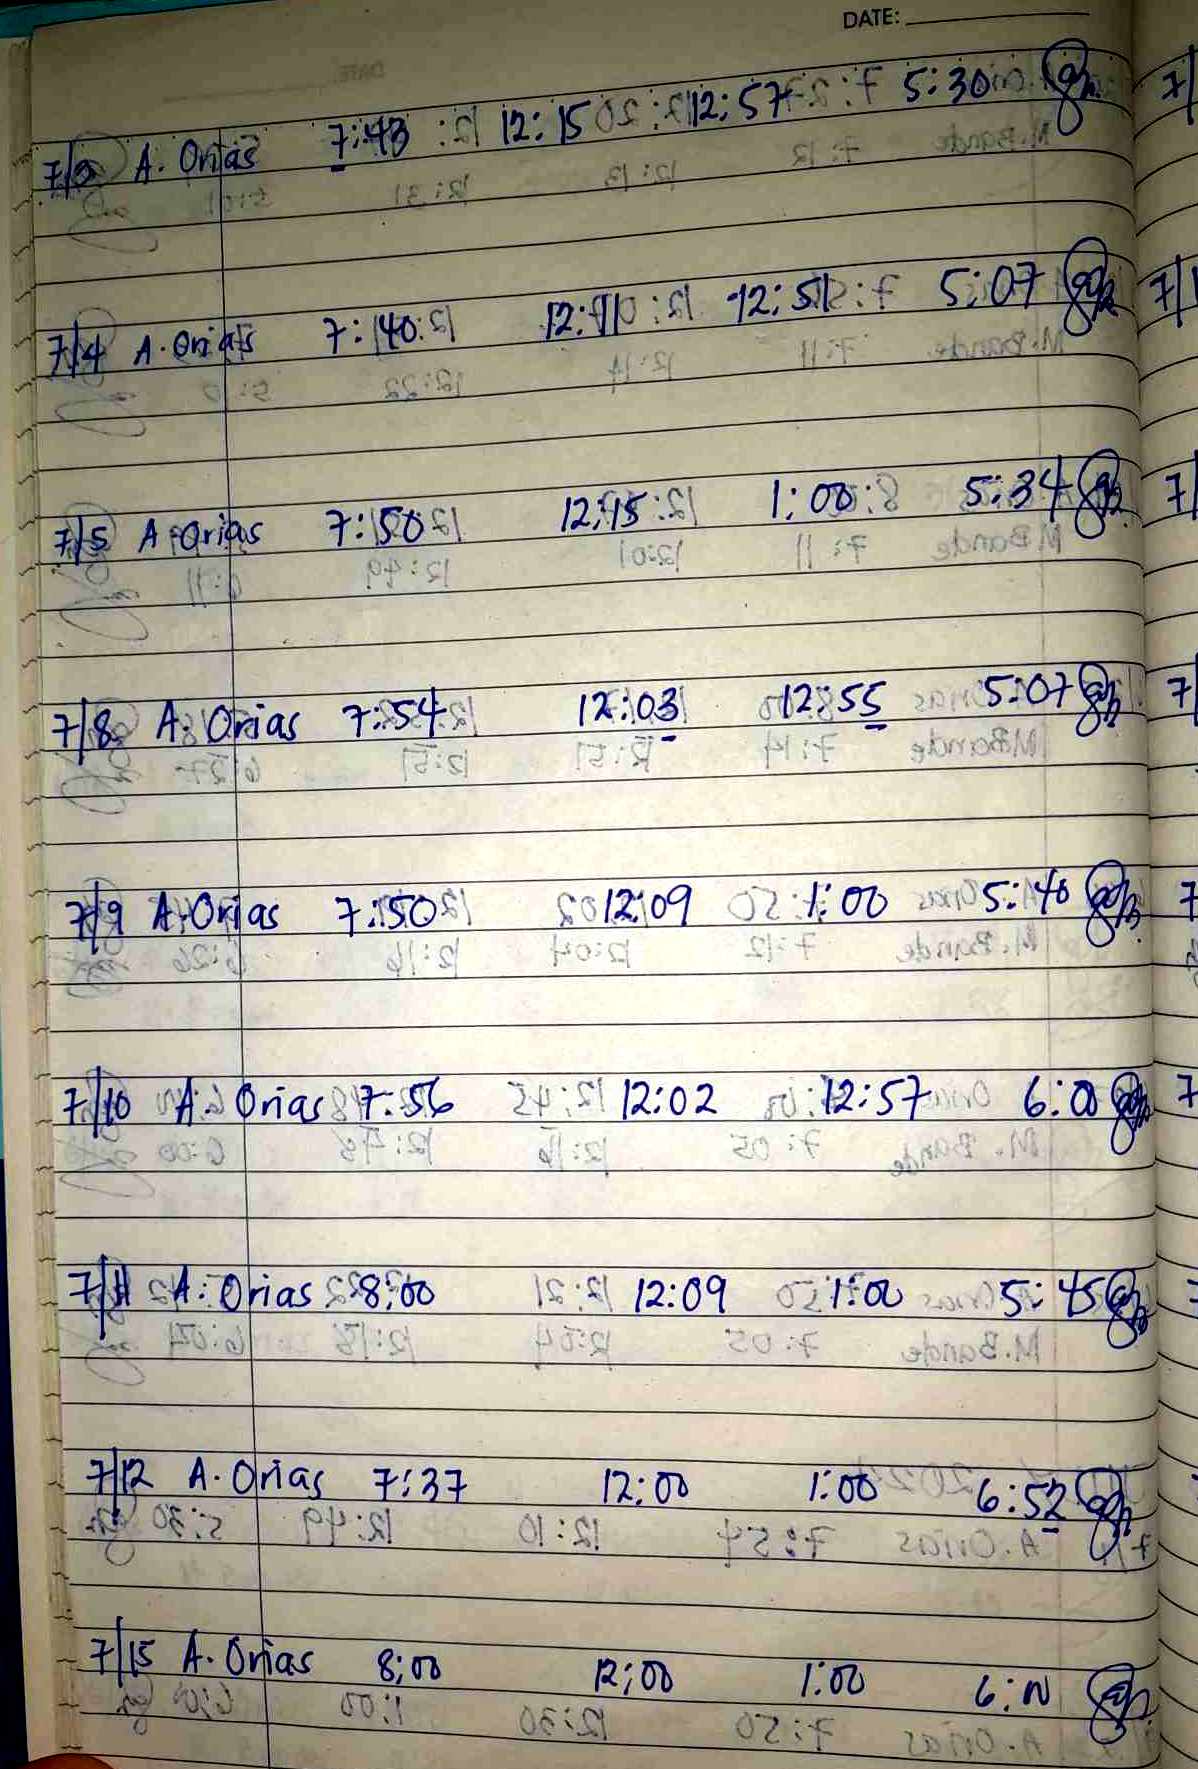 DATE:
A. Orias 7:43 12:15 12:57 5:30
7/4 A. Orias 7:40 12:11 12:51 5:07
7/5 A. Orias 7:50 12:15 1:00 5:34
7/8 A. Orias 7:54 12:03 12:55 5:07
7/9 A. Orias 7:50 12:09 1:00 5:40
7/10 A. Orias 7:56 12:02 12:57 6:00
7/11 A. Orias 8:00 12:09 1:00 5:45
7/12 A. Orias 7:37 12:00 1:00 6:52
7/15 A. Orias 8:00 12:00 1:00